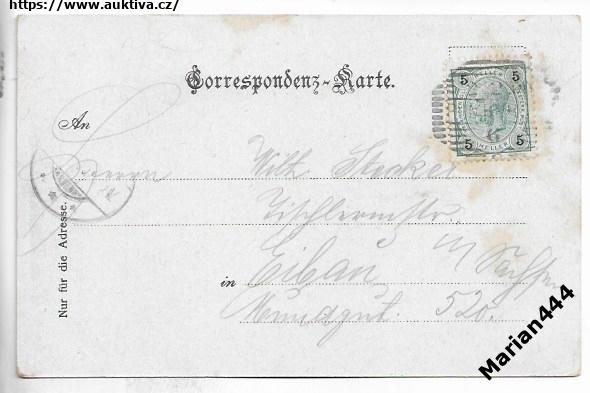 https://www.auktiva.cz/
Correspondenz-Karte.
An
Herrn Wilh. Stecker
Tischlermstr.
in Eibau in Sachsen
520.
Nur für die Adresse.
5 HELLER 5
5 HELLER 5
Marian444